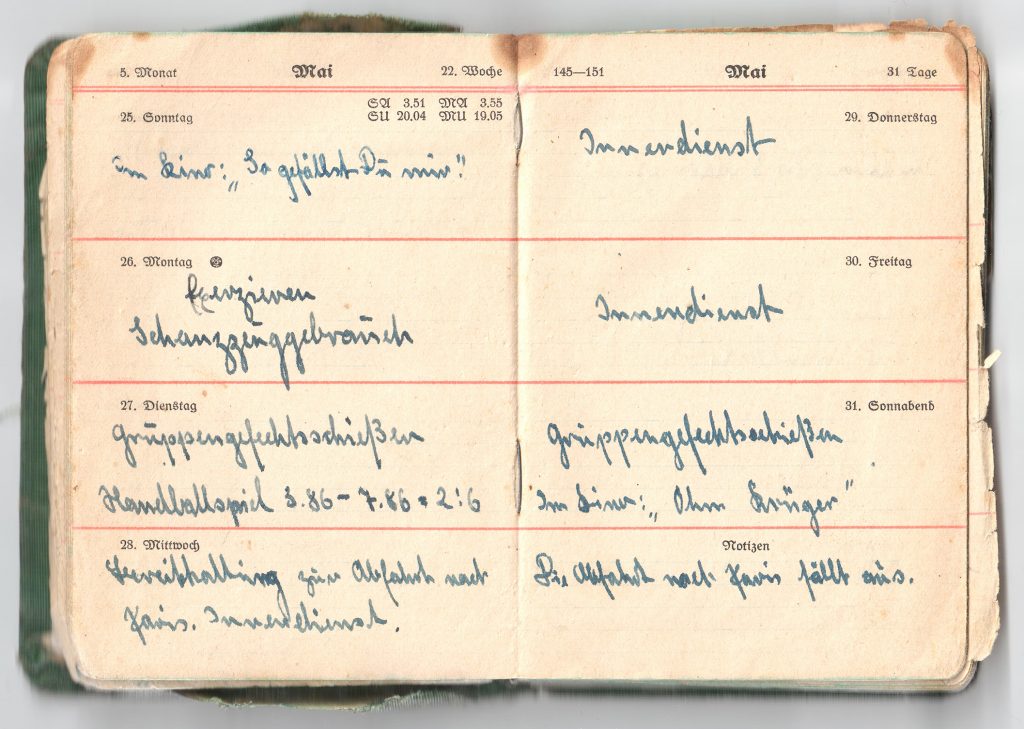 5. Monat Mai 22. Woche
25. Sonntag SA 3.51 MA 3.55
SU 20.04 MU 19.05
Im Kino: „So gefällst Du mir"
26. Montag
Exerzieren
Schanzzeuggebrauch
27. Dienstag
Gruppengefechtsschießen
Handballspiel 3.86 – 7.86 = 2:6
28. Mittwoch
Bereithaltung zur Abfahrt nach
Paris. Innendienst.
145—151 Mai 31 Tage
29. Donnerstag
Innendienst
30. Freitag
Innendienst
31. Sonnabend
Gruppengefechtsschießen
Im Kino: „Ohm Krüger"
Notizen
Die Abfahrt nach Paris fällt aus.